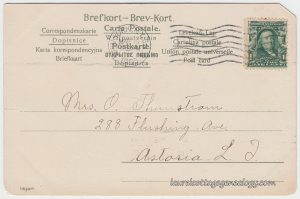 Brefkort-Brev-Kort.
Correspondenzkarte
Dopisnice
Karta korespondencyjna
Briefkaart
Carte Postale.
Postkarte
Dopisnica
Levelező-Lap
Cartolina postale
Union postale universelle
Post card
Mrs. O. Thunstrom
288 Flushing Ave.
Astoria L I
laurelcottagegenealogy.com